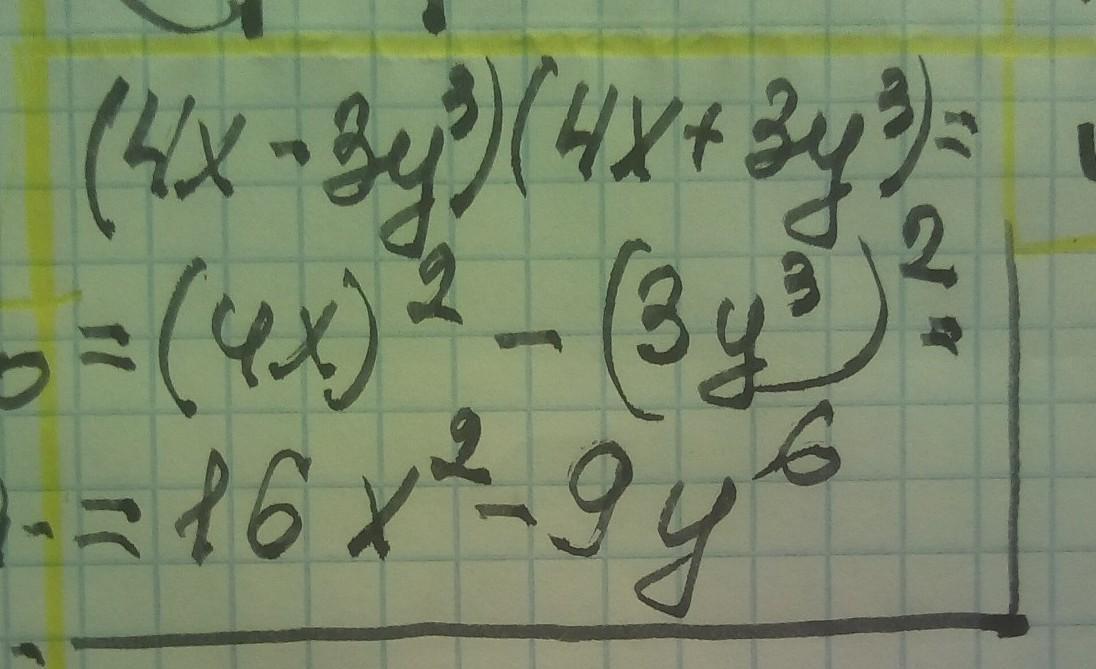 (4x - 3y³)(4x + 3y³) =
= (4x)² - (3y³)² =
= 16x² - 9y⁶